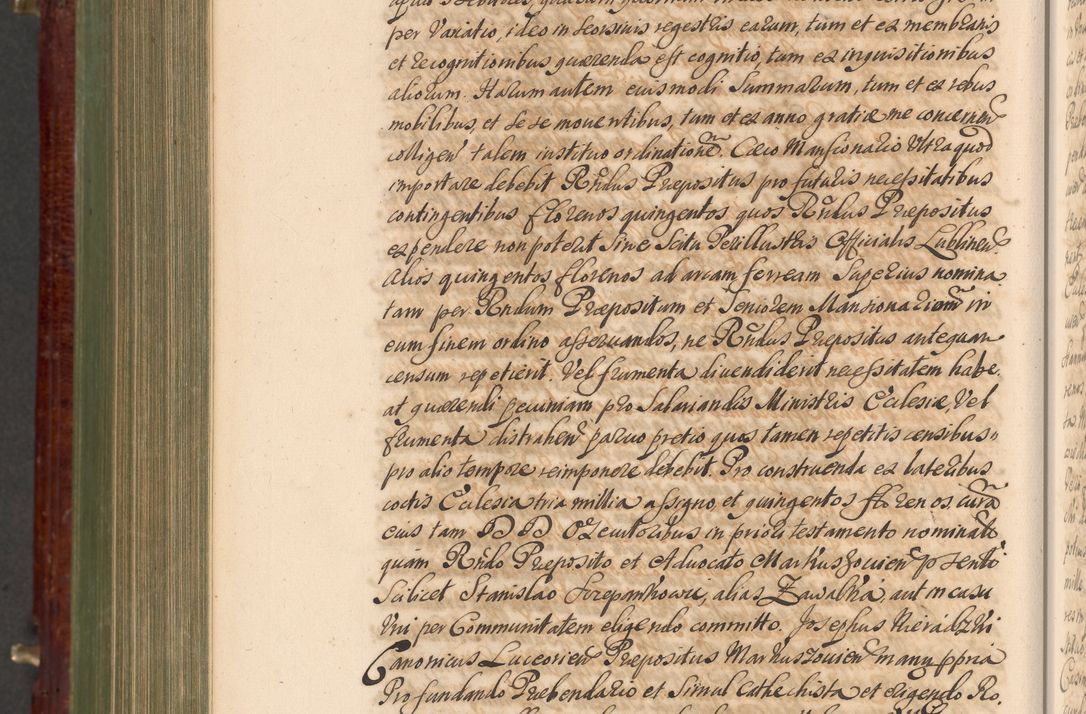 per Variatio, ideo in seorsivis regestris earum, tum et ex membranis
et recognitionibus quaerenda est cognitio, tum ex inquisitionibus
aliorum. Harum autem eiusmodi Summarum, tum et ex rebus
mobilibus, et se se moventibus, tum et ex anno gratiae me concernen
colligen talem instituo ordinationem. Caeco Mansionario Ultra quod
importare debebit Rndus Praepositus pro futuris necessitatibus
contingentibus florenos quingentos, quos Rndus Praepositus
expendere non poterit sine Scitu Perillustris Officialis Lublinen
Alios quingentos florenos ad arcam ferream Superius nomina
tam per Rndum Praepositum et Seniorem Mansionariorum in
eum finem ordino asservandos, ne Rndus Praepositus antequam
censum repetierit. Vel frumenta divendiderit necessitatem habe,
at quaerendi pecuniam pro Salariandis Ministris Ecclesiae, Vel
frumenta distrahen parvo pretio quos tamen repetitis censibus
pro alio tempore reimponere debebit. Pro construenda ex lateribus
coctis Ecclesia tria millia assigno, et quingentos florenos, curam
eius tam DD Exequutoribus in priori testamento nominatis
quam Rndo Praeposito et Advocato Markuszovien
Scilicet Stanislao Szczepankowic, alias Zawalka, aut in casu
Uni per Communitatem eligendo committo. Josephus Kieradzki
Canonicus Luceorien Praepositus Markuszovien manu ppria
Pro fundando Praebendario et Simul Cathechista et erigendo Ro.